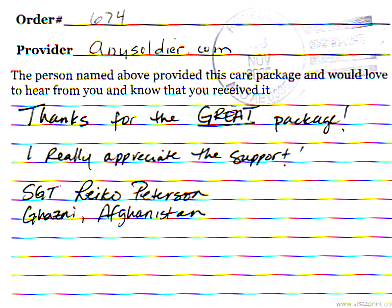 Order# 674
Provider anysoldier.com
The person named above provided this care package and would love
to hear from you and know that you received it
Thanks for the GREAT package!
I Really appreciate the support!
SGT Reiko Peterson
Ghazni, Afghanistan